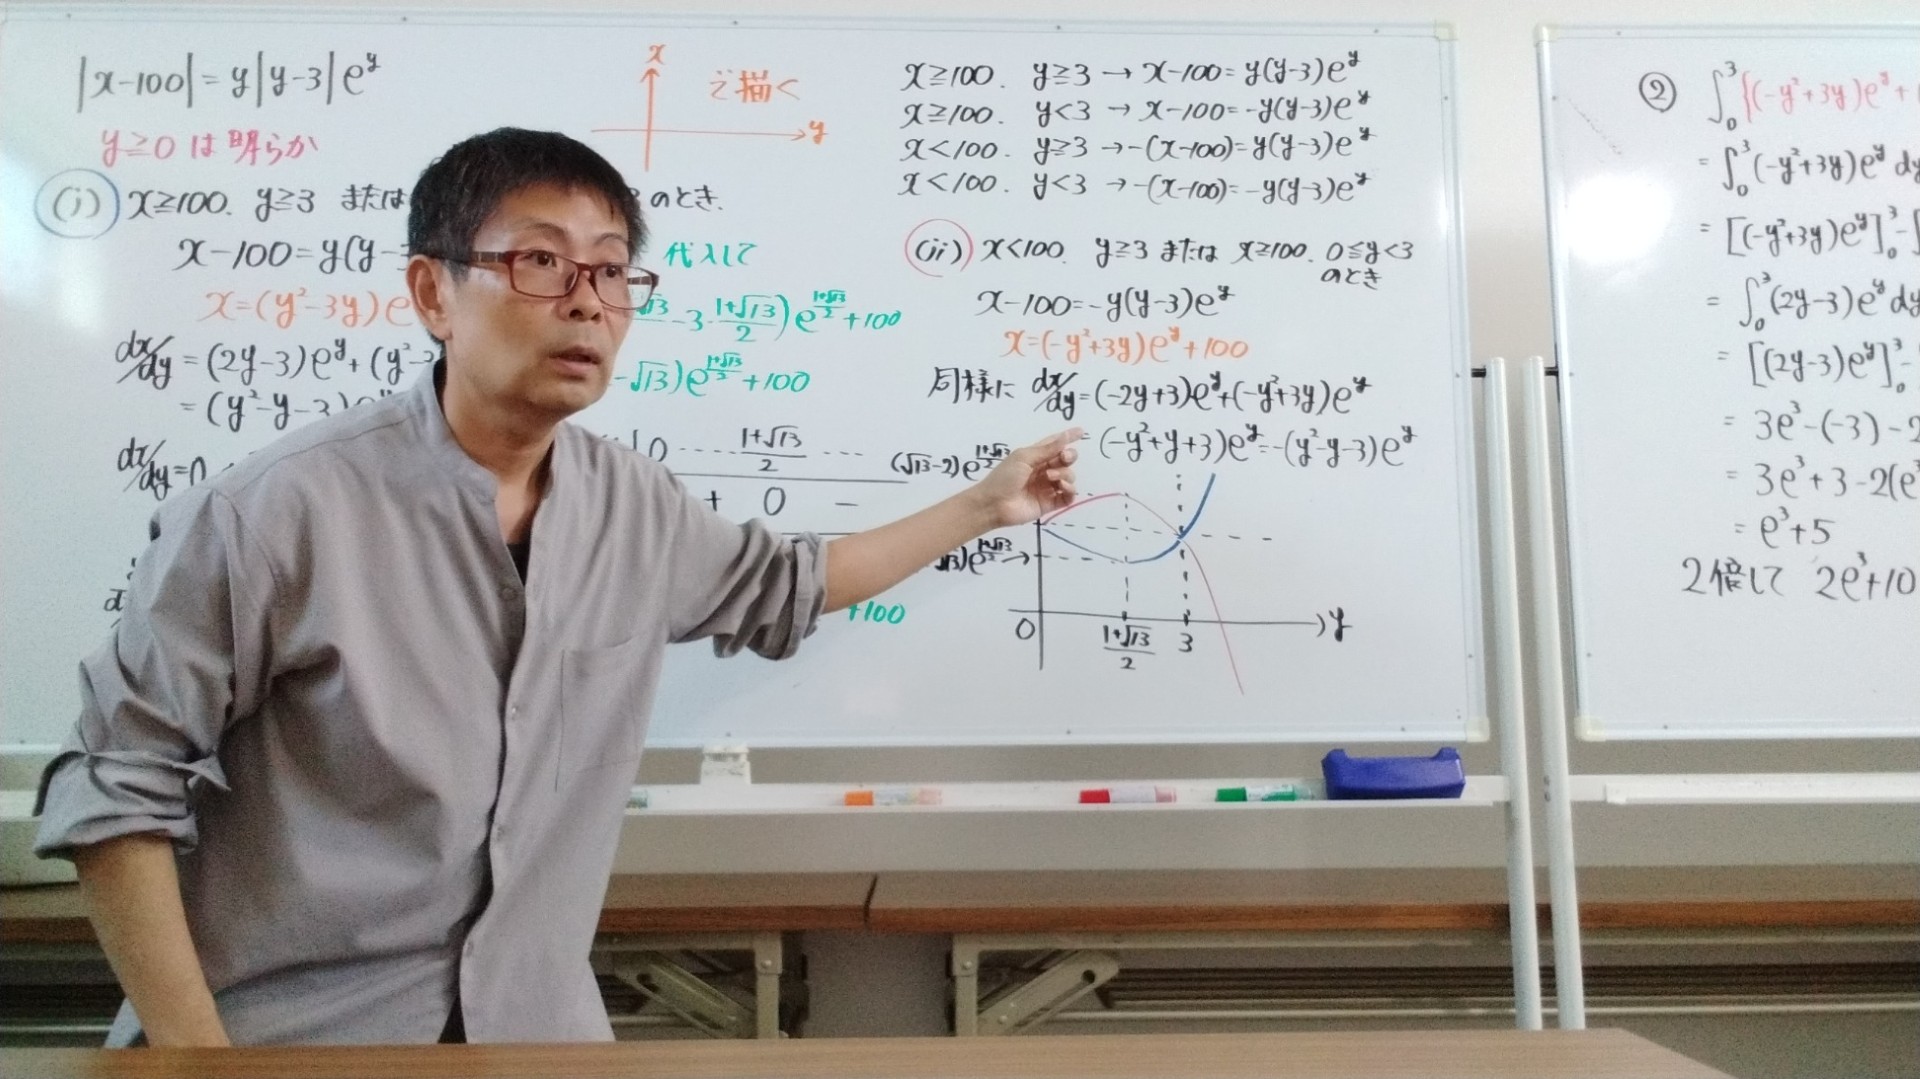 |x-100|=y|y-3|e^y
y≧0は明らか
x
で描く
y
(i) x≧100. y≧3 または
のとき.
x-100=y(y-3
代入して
x=(y²-3y)e
-3・(1+√13)/2)e^((1+√13)/2)+100
dx/dy=(2y-3)e^y+(y²-3
-√13)e^((1+√13)/2)+100
=(y²-y-3)e^y
dx/dy=0
0 ---- (1+√13)/2 ---
+ 0 -
+100
x≧100. y≧3→x-100=y(y-3)e^y
x≧100. y<3→x-100=-y(y-3)e^y
x<100. y≧3→-(x-100)=y(y-3)e^y
x<100. y<3→-(x-100)=-y(y-3)e^y
(ii) x<100. y≧3 または x≧100. 0≦y<3
のとき
x-100=-y(y-3)e^y
x=(-y²+3y)e^y+100
同様に dx/dy=(-2y+3)e^y+(-y²+3y)e^y
=(-y²+y+3)e^y=-(y²-y-3)e^y
(√13-2)e^((1+√13)/2)
√13)e^((1+√13)/2)→
O (1+√13)/2 3 y
② ∫₀³{(-y²+3y)e^y+1
=∫₀³(-y²+3y)e^y dy
=[(-y²+3y)e^y]₀³-∫
=∫₀³(2y-3)e^y dy
=[(2y-3)e^y]₀³-
=3e³-(-3)-2
=3e³+3-2(e³
=e³+5
2倍して 2e³+10